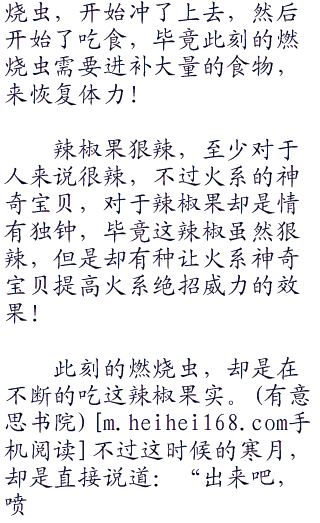 烧虫，开始冲了上去，然后
开始了吃食，毕竟此刻的燃
烧虫需要进补大量的食物，
来恢复体力！
辣椒果狠辣，至少对于
人来说很辣，不过火系的神
奇宝贝，对于辣椒果却是情
有独钟，毕竟这辣椒虽然狠
辣，但是却有种让火系神奇
宝贝提高火系绝招威力的效
果！
此刻的燃烧虫，却是在
不断的吃这辣椒果实。(有意
思书院)[m.heihei168.com手
机阅读]不过这时候的寒月，
却是直接说道：“出来吧，
喷